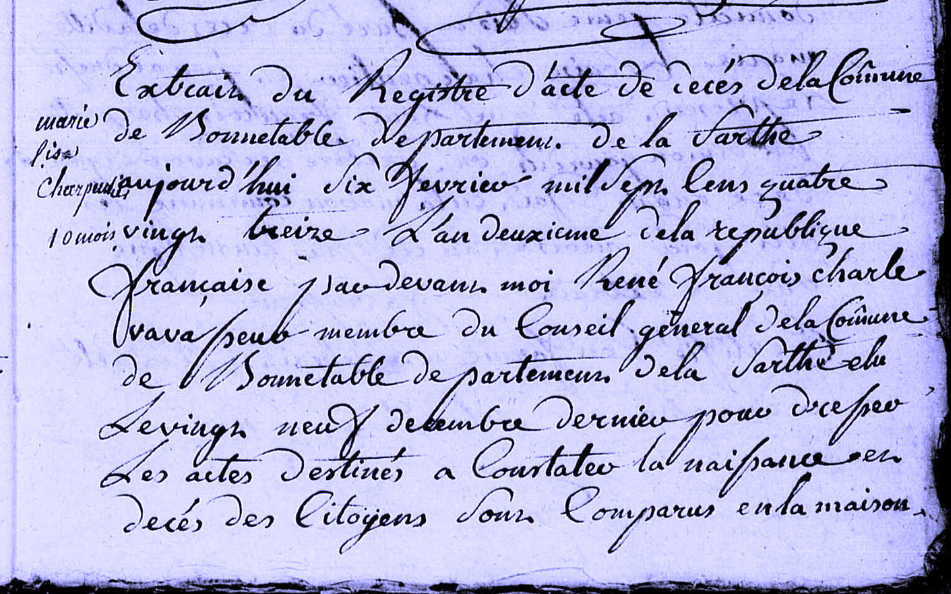 Extrait du Registre d'acte de decés dela Cômune
marie
de Bonnetable departement de la Sarthe
lise
Charpentier
aujourd'hui Six fevrier mil Sept Cens quatre
10 mois
vingt treize L'an deuxieme dela republique
française par devant moi René françois Charle
vavasseur membre du Conseil géneral dela Cômune
de Bonnetable departement dela Sarthe elu
Le vingt neuf decembre dernier pour dresser
Les actes destinés a Constater la naissance et
decés des Citoyens Sont Comparus en la maison